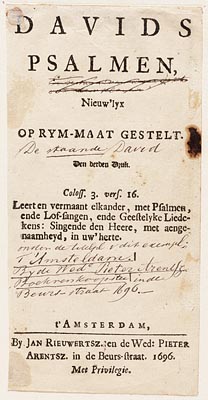 DAVIDS
PSALMEN,
Nieuw'lyx
OP RYM-MAAT GESTELT.
De staande David
Den derden Druk.
Coloss. 3. vers. 16.
Leert en vermaant elkander, met Psalmen,
ende Lof-sangen, ende Geestelyke Liede-
kens: Singende den Heere, met aenge-
naamheyd, in uw'herte.
onder de titel
t'Amsterdam
By de Wed. Pieter Arentsz
Boekverkoopster in de
Beurs straat 1696.
t'AMSTERDAM,
By JAN RIEUWERTSZ: en de Wed: PIETER
ARENTSZ. in de Beurs-straat. 1696.
Met Privilegie.